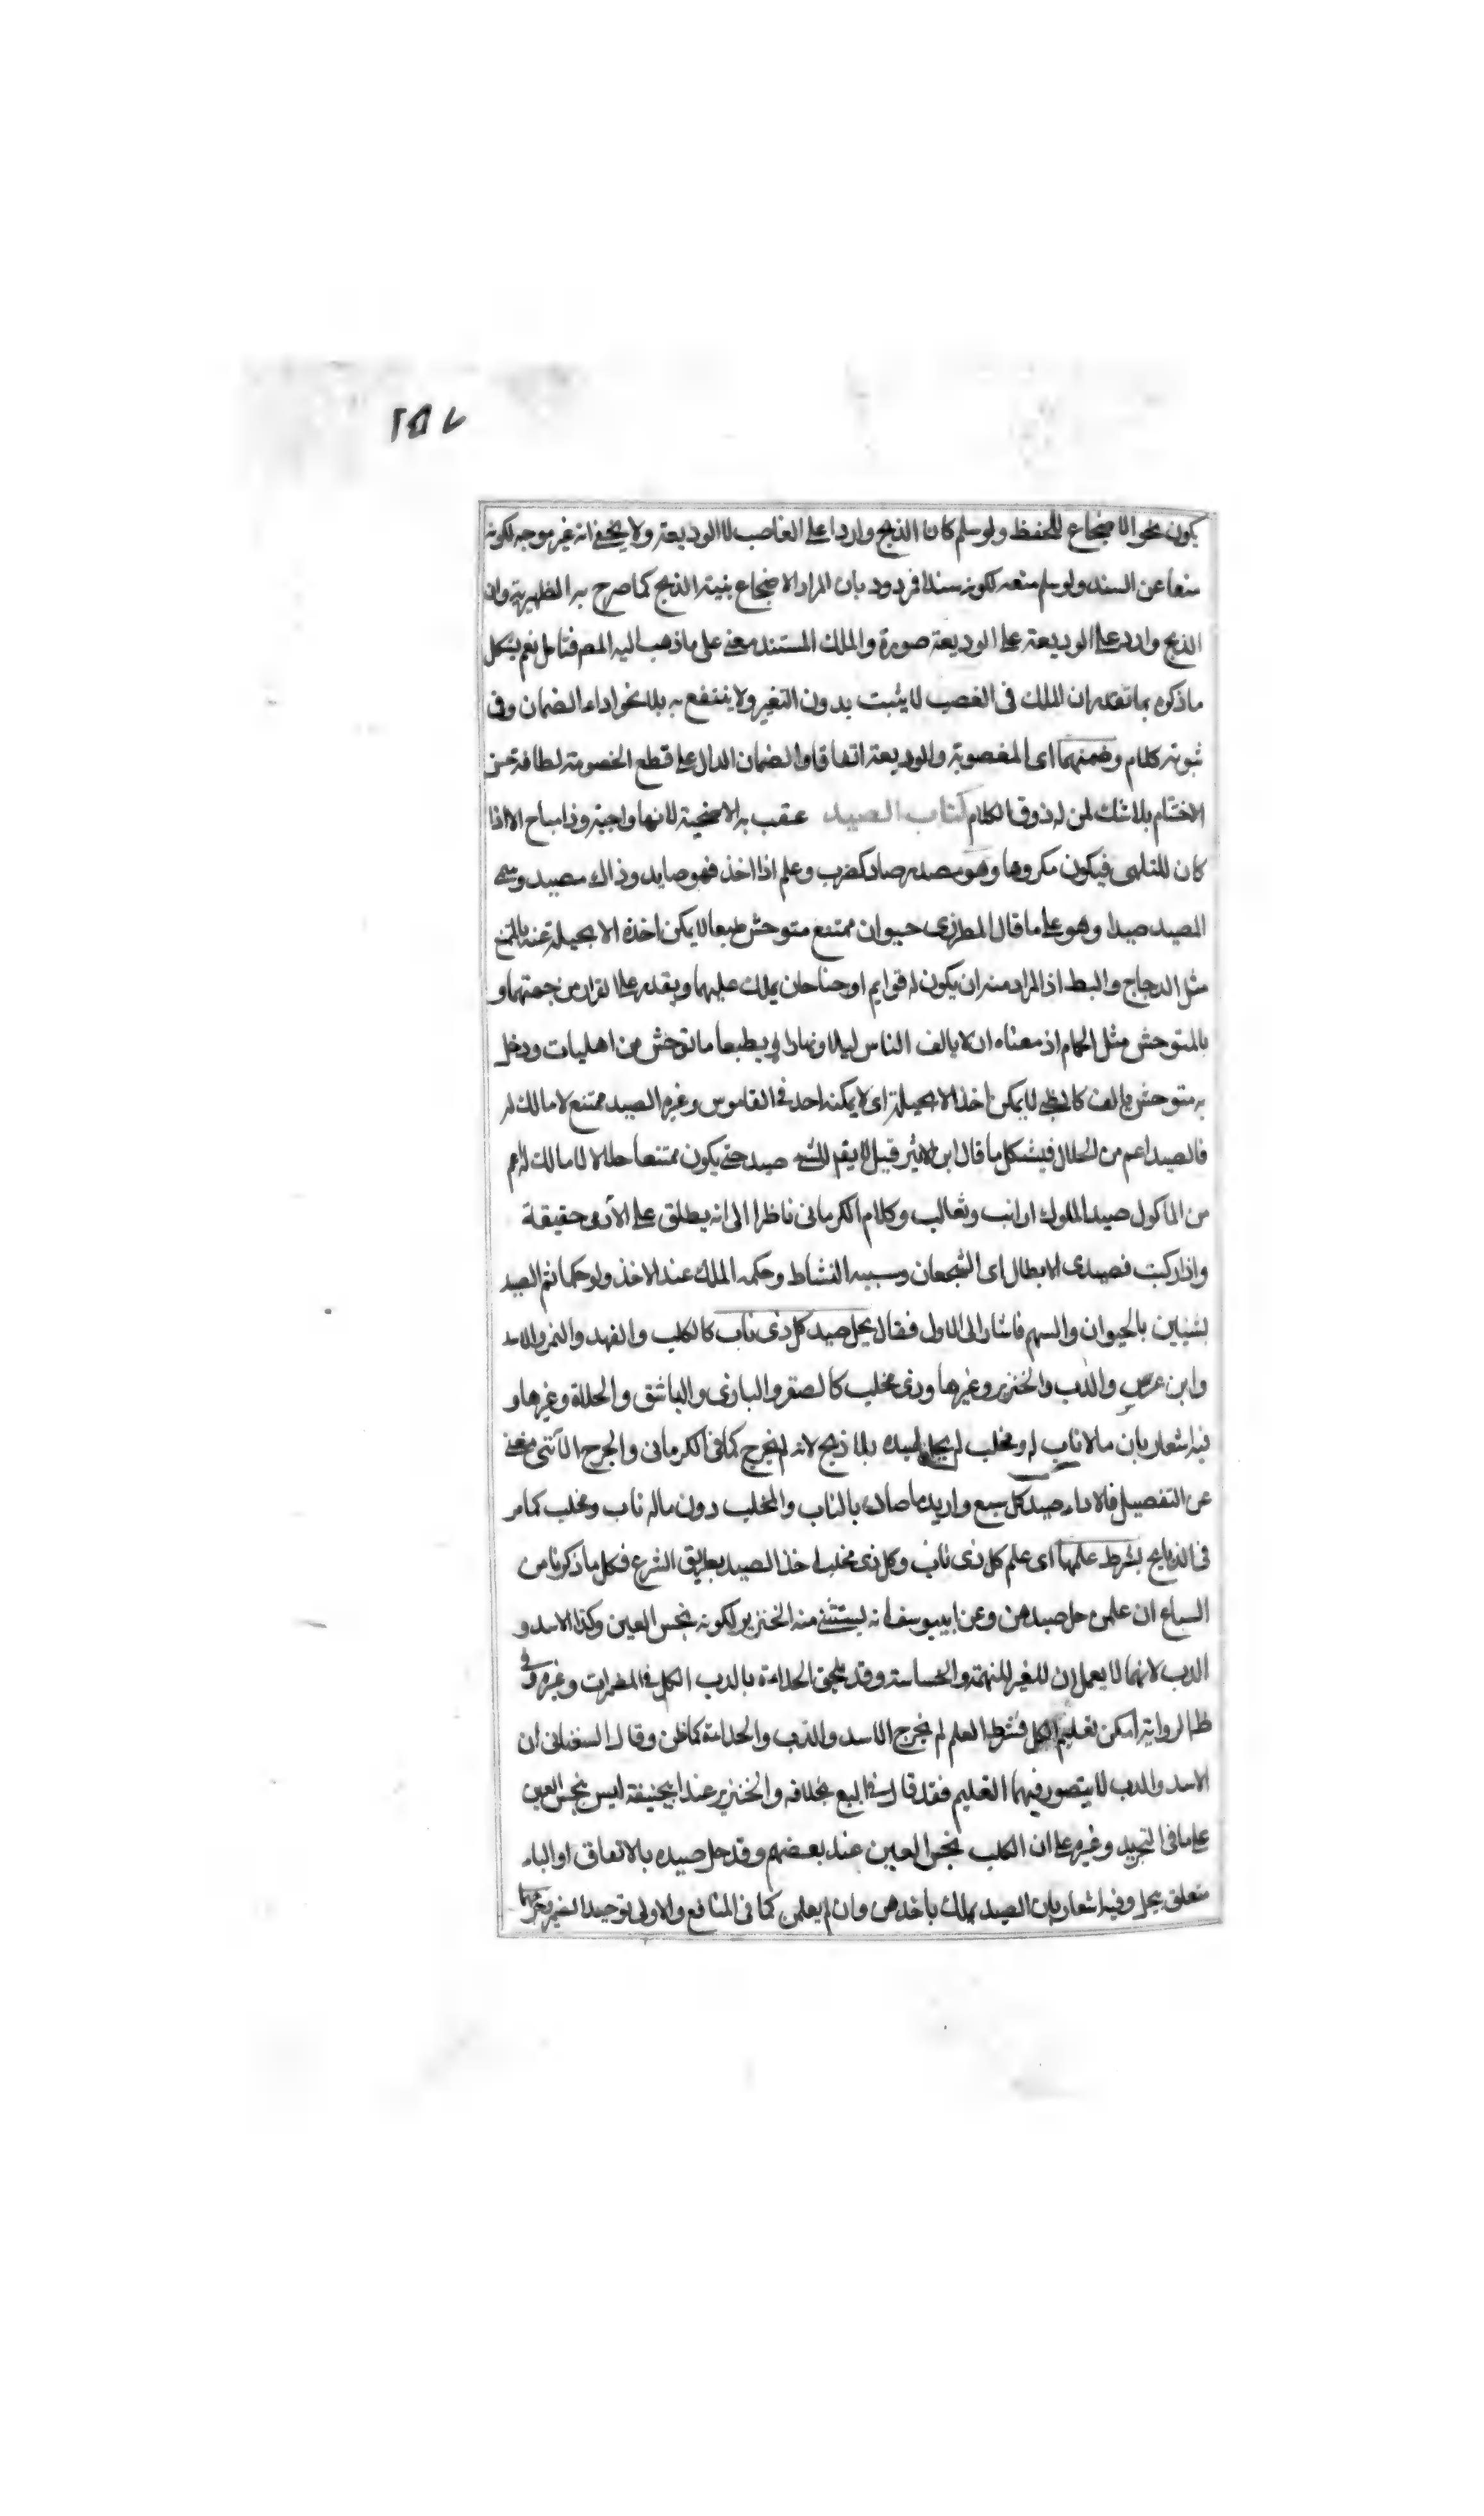 ٢٥٧
يكون نحو الاضجاع للحفظ ولو سلم كان الذبح واردا على الغاصب لا الوديعة ولا يخفى انه غير موجه لكونه
منعا عن السند ولو سلم منعه لكونه سندا فمردود بان المراد الاضجاع بنية الذبح كما صرح به الظهيرية وان
الذبح وارد على الوديعة على الوديعة صورة والملك المستند معنى على ما ذهب اليه المصـ فتامل نعم يشكل
ما ذكره بما تقدم ان الملك فى الغصب لا يثبت بدون التغير ولا ينتفع به بلا نحو اداء الضمان وفى
ثبوته كلام وضمنهما اى المغصوبة والوديعة اتفاقا والضمان الدال على قطع الخصومة لطافة حسن
الاختتام بلا شك لمن له ذوق الكلام كتاب الصيد عقب به الاضحية لانها واجبة وذا مباح الا اذا
كان للتلهى فيكون مكروها وهو مصدر صاد كضرب وعلم اذا اخذ فهو صايد وذاك مصيد وسمى
المصيد صيدا وهو على ما قال المطرزى حيوان ممتنع متوحش طبعا لا يمكن اخذه الا بحيلة عنه بالممتنع
مثل الدجاج والبط اذ المراد منه ان يكون له قوايم او جناحان يملك عليهما ويقدر على الفرار من جهتهما و
بالمتوحش مثل الحمام اذ معناه ان لا يالف الناس ليلا ونهارا وبطبعا ما توحش من اهليات ودخل
به متوحش يالف كالظبى لا يمكن اخذه الا بحيلة اى لا يمكنه احد فى القاموس وغيره الصيد ممتنع لا مالك له
فالصيد اعم من الحلال فيشكل ما قال ابن الاثير قيل لا يقـ للشئ صيد حتى يكون ممتنعا حلالا لا مالك له اعم
من الماكول صيد الملوك ارانب وثعالب وكلام الكرمانى ناظر الى انه يطلق على الآدمى حقيقة
واذا ركبت فصيدى الابطال اى الشجعان وسببه النشاط وحكمه الملك عند الاخذ ولو حكما ثم الصيد
بشيئين بالحيوان والسهم فاشار الى الاول فقال يحل صيد كل ذى ناب كالكلب والفهد والنمر والاسد
وابن عرس والدب والخنزير وغيرها وذى مخلب كالصقر والبازى والباشق والحداة وغيرها و
فيه اشعار بان ما لا ناب له ومخلب لم يحل صيده بلا ذبح لانه لم يجرح كما فى الكرمانى والجرح الآتى مغنى
عن التفصيل فالاداء صيد كل سبع واريد ما صاد بالناب والمخلب دون ماله ناب ومخلب كما مر
فى الذبايح بشرط علمهما اى علم كل ذى ناب وكل ذى مخلب اخذ الصيد بطريق الشرع فكل ما ذكرنا من
السباع ان علمن حل صيدهن وعن ابييوسف انه يستثنى منه الخنزير لكونه نجس العين وكذا الاسد و
الدب لانهما لا يعملان للغير للنهمة والخساسة وقد يلحق الحداءة بالدب الكل فى المضمرات وغيره وفى
ظـ الرواية امكن تعليم الكل فشرط العلم لم يخرج الاسد والدب والحداءة كما ظن وقال السغناقى ان
الاسد والدب لا يتصور فيهما التعليم فقد قال فى البيع بخلافه والخنزير عند ابيحنيفة ليس نجس العين
على ما فى التجريد وغيره على ان الكلب نجس العين عند بعضهم وقد حل صيده بالاتفاق او الباء
متعلق بحل وفيه اشعار بان الصيد يملك باخذهن وان لم يعلمن كما فى المنافع والاولى توحيد الضمير وجرحهما